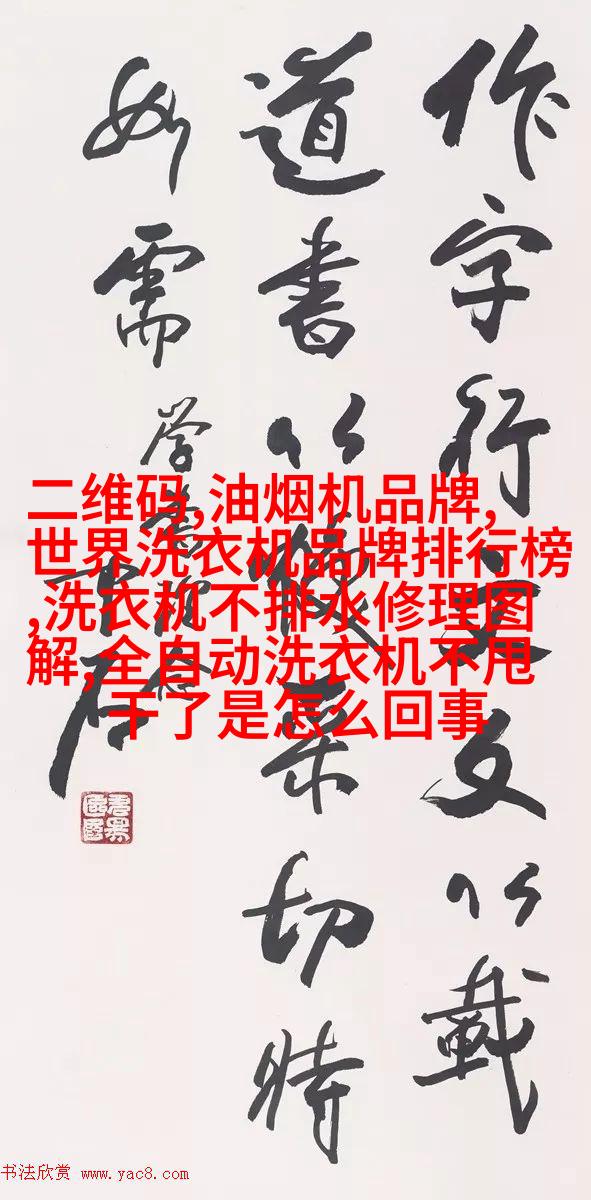 作字行文文以載
道書以煥采切時
如需
学書理念
中石
二维码,油烟机品牌,
世界洗衣机品牌排行榜
,洗衣机不排水修理图
解,全自动洗衣机不甩
干了是怎么回事
书法欣赏 www.yac8.com